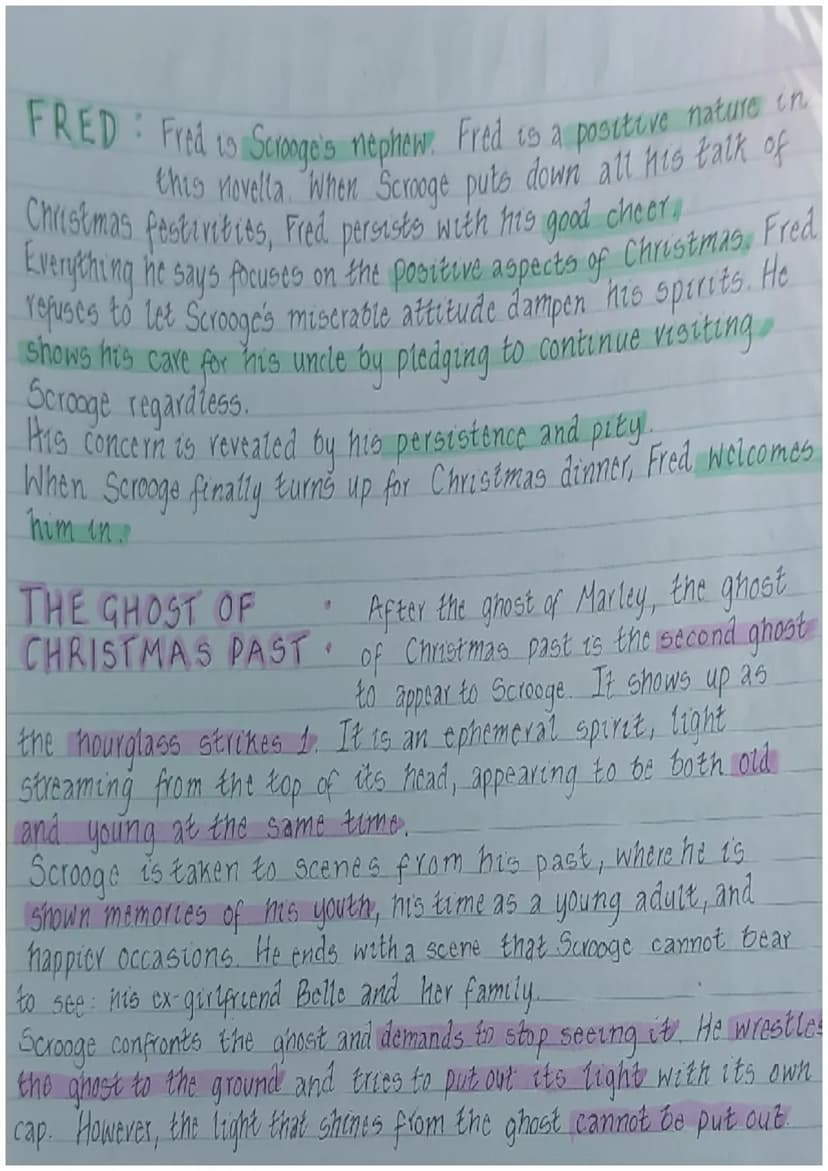 FRED : Fred is Scrooge's nephew. Fred is a positive nature in
this novella. When Scrooge puts down all his talk of
Christmas festivities, Fred persists with his good cheer.
Everything he says focuses on the positive aspects of Christmas. Fred
refuses to let Scrooge's miserable attitude dampen his spirits. He
shows his care for his uncle by pledging to continue visiting
Scrooge regardless.
His concern is revealed by his persistence and pity.
When Scrooge finally turns up for Christmas dinner, Fred welcomes
him in.
THE GHOST OF : After the ghost of Marley, the ghost
CHRISTMAS PAST of Christmas past is the second ghost
to appear to Scrooge. It shows up as
the hourglass strikes 1. It is an ephemeral spirit, light
streaming from the top of its head, appearing to be both old
and young at the same time.
Scrooge is taken to scenes from his past, where he is
shown memories of his youth, his time as a young adult, and
happier occasions. He ends with a scene that Scrooge cannot bear
to see: his ex-girlfriend Belle and her family.
Scrooge confronts the ghost and demands to stop seeing it. He wrestles
the ghost to the ground and tries to put out its light with its own
cap. However, the light that shines from the ghost cannot be put out.